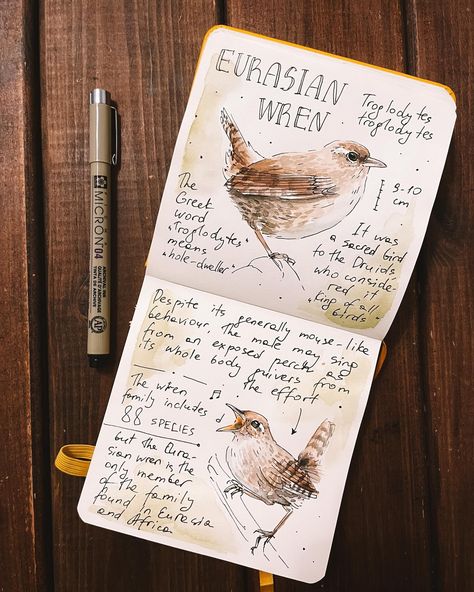 EURASIAN
WREN
Troglodytes
troglodytes
9-10
cm
The
Greek
word
"Troglodytes"
means
"hole-dweller"
It was
a sacred bird
to the Druids
who conside-
red it
"king of all
birds"
Despite its generally mouse-like
behaviour, the male may sing
from an exposed perch as
its whole body quivers from
the effort
The wren
family includes
88 SPELIES
but the Eura-
sian wren is the
only member
of the family
found in Eurasia
and Africa
MICRON 04
ARCHIVAL INK
QUALITÉ D'ARCHIVAGE
TINTA DE ARCHIVO
AP